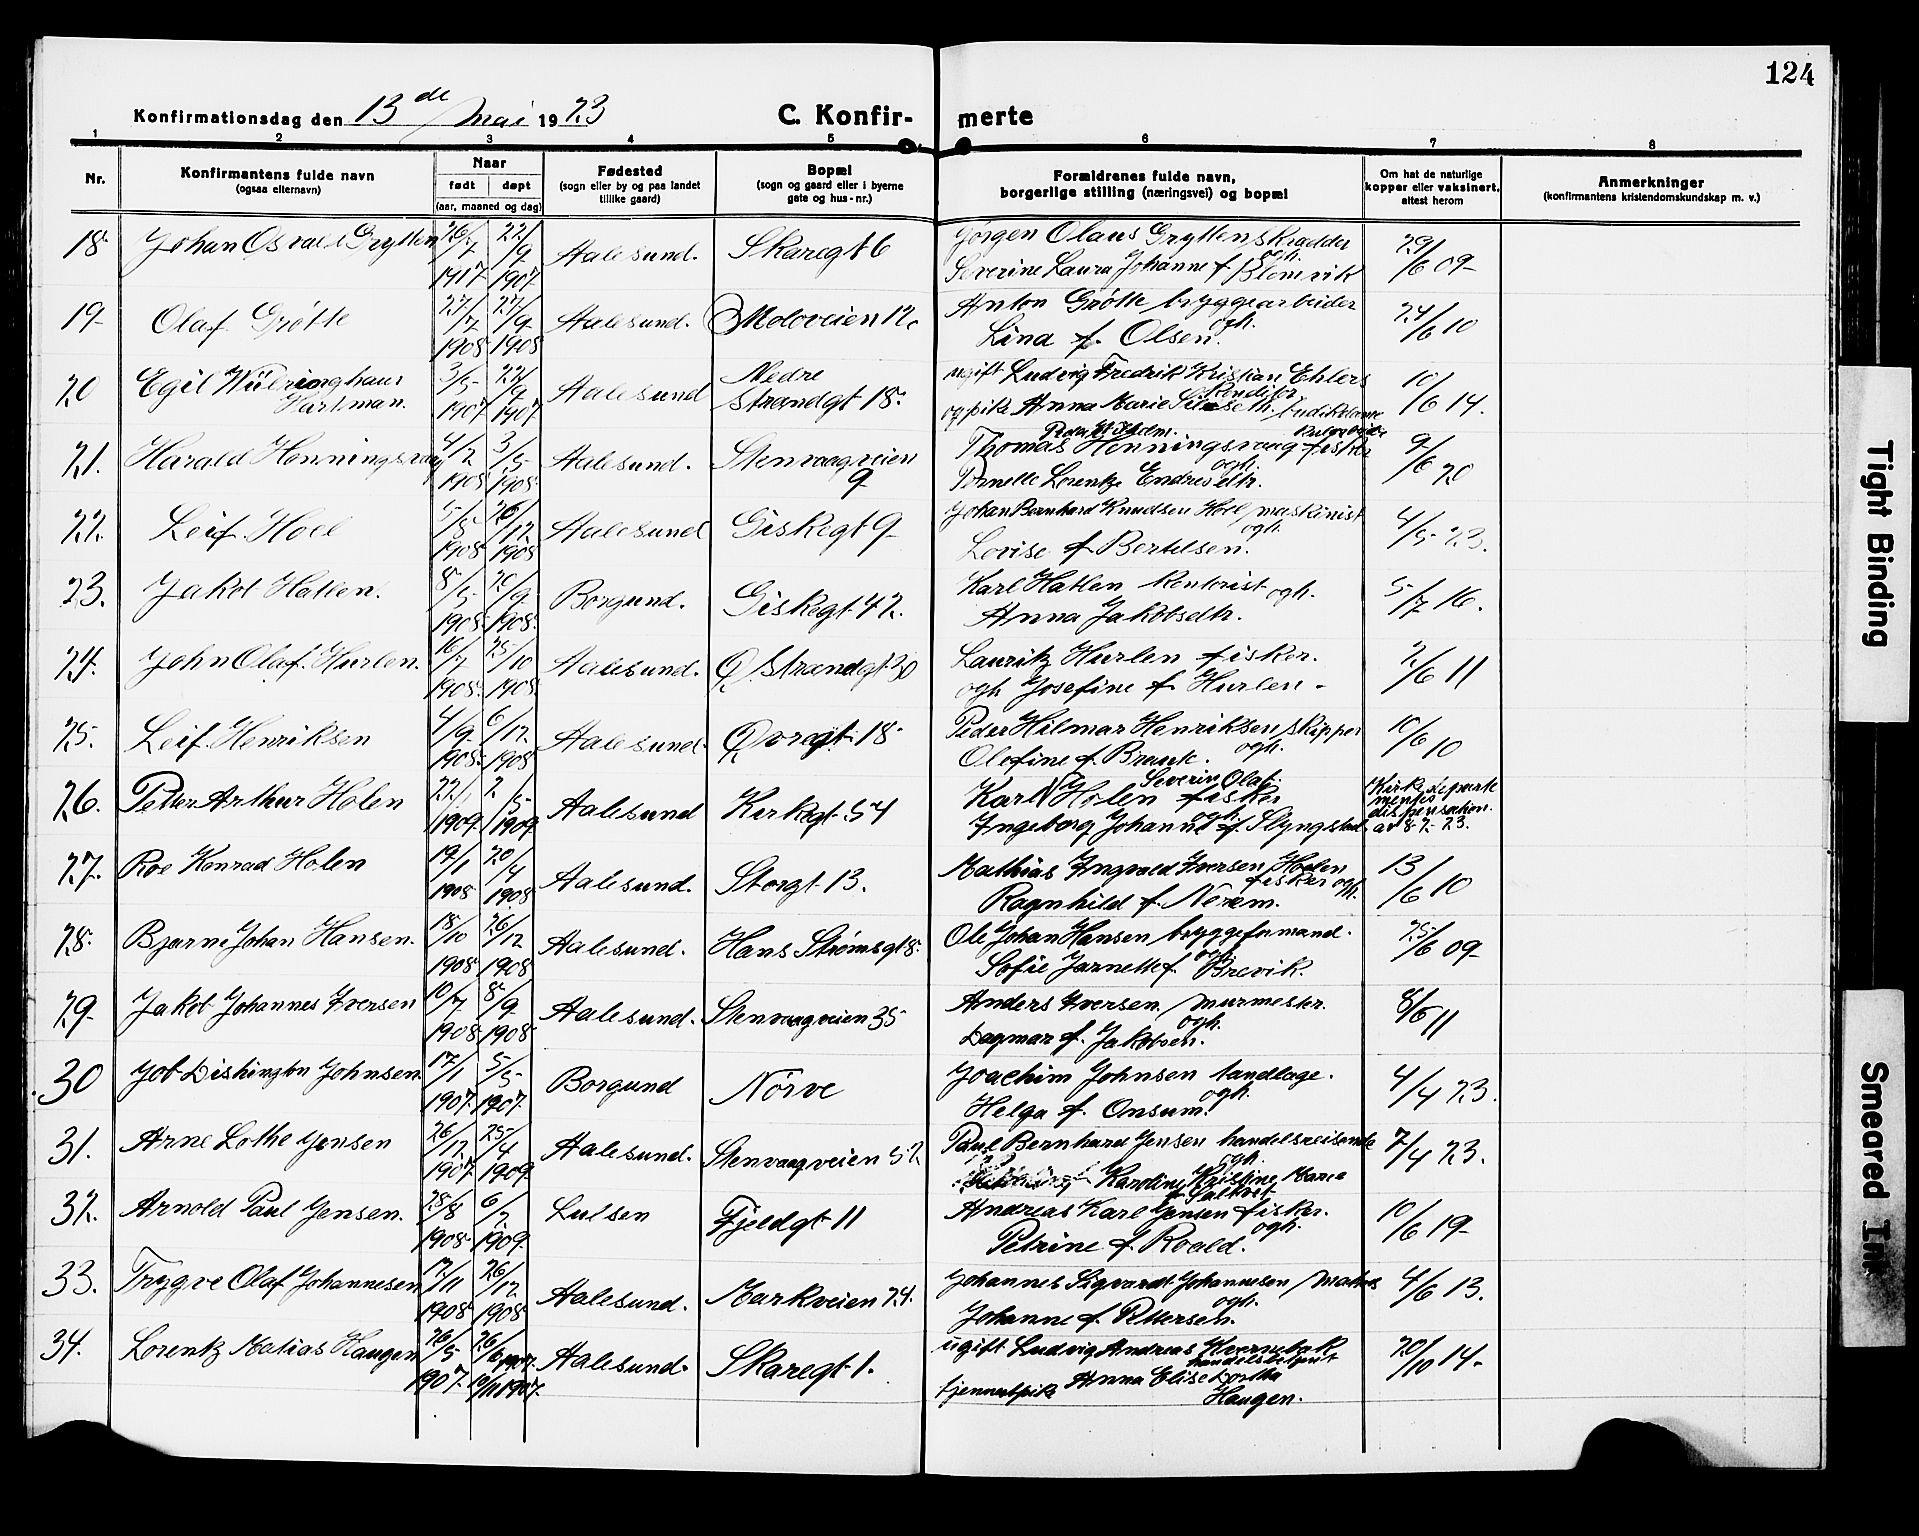 124
Konfirmationsdag den 13de Mai 1923 C. Konfirmerte
1 2 3 4 5 6 7 8
Nr. Konfirmantens fulde navn (ogsaa efternavn) Naar født døpt (aar, maaned og dag) Fødested (sogn eller by og paa landet tillike gaard) Bopæl (sogn og gaard eller i byerne gate og hus-nr.) Forældrenes fulde navn, borgerlige stilling (næringsvei) og bopæl Om hat de naturlige kopper eller vaksinert, attest herom Anmerkninger (konfirmantens kristendomskundskap m. v.)
18 Johan Osvald Grytten 22/9 1907 Aalesund. Skaregt 6 Jørgen Olaus Grytten skrædder ogh. 29/6 09
Severine Laura Johanne f. Blomvik
19 Olaf Grøtte 27/9 1908 1908 Aalesund. Moloveien 12c Anton Grøtte bryggearbeider ogh. 24/6 10
Lina f. Olsen.
20 Egil Wülringhaus Hartman. 3/5 1907 22/9 1907 Aalesund Nedre Strandgt 18. ugift Ludvig Fredrik Kristian Ehlers Konditor 10/6 14.
og pike Anna Marie
21. Harald Henningsvaag 4/2 1908 3/5 1908 Aalesund. Stenvaagveien 9 Peder Wilhelm.
Thomas Henningsvaag fisker ogh. 9/6 20
Pernelle Lorentze Endresdtr.
22. Leif Hoel 5/8 1908 26/12 1908 Aalesund Giskegt 9 Johan Bernhard Knudsen Hoel maskinist ogh. 4/5 23.
Lovise f Bertelsen.
23. Jakob Hatlen. 8/5 1908 20/9 1908 Borgund. Giskegt 42. Karl Hatlen kontorist ogh. 5/7 16.
Anna Jakobsdtr.
24. John Olaf Hurlen. 16/7 1908 25/10 1908 Aalesund. Ø Strandgt 20 Lauritz Hurlen fisker. 2/6 11
ogh Josefine f Hurlen -
25. Leif Henriksen 4/9 1908 6/12 1908 Aalesund. Øvregt 18. Peder Hilmar Henriksen skipper ogh. 10/6 10
Olefine f. Brauk.
26. Peder Arthur Holen 22/1 1909 2/5 1909 Aalesund Kirkegt. 54 Severin Olaf.
Karl Holen fisker ogh. Kirkedepartementets dispensation. av 8-2-23.
Ingeborg Johanne f. Slyngstad
27. Roe Konrad Holen 19/1 1908 20/4 1908 Aalesund. Storgt 13. Mathias Ingvald Iversen Hoelen fisker ogh. 13/6 10
Ragnhild f. Nerem.
28. Bjarne Johan Hansen. 18/10 1908 26/12 1908 Aalesund. Hans Strømsgt 8. Ole Johan Hansen bryggeformand. ogh. 25/6 09
Sofie Jarnette f. Brevik.
29 Jakob Johannes Iversen 10/7 1908 8/9 1908 Aalesund. Stenvaagveien 35 Anders Iversen, murmester. ogh. 8/6 11
Dagmar f. Jakobsen.
30 Job Dishington Johnsen 17/1 1907. 5/5 1907. Borgund Nørve Joachim Johnsen tandlæge. ogh. 4/4 23.
Helga f. Onsum.
31. Arne Lothe Jensen 26/12 1907. 25/4 1909 Aalesund. Stenvaagveien 52. Paul Bernhard Jensen handelsreisende ogh. 7/4 23.
Karoline Kristine Marie
32. Arnold Paul Jensen. 28/8 1908 6/2 1909. Fjeldgt 11 Andreas Karl Jensen fisker. ogh. 10/6 19
Petrine f. Roald.
33. Trygve Olaf Johannesen 12/11 1908 26/12 1908 Aalesund. Markveien 24. Johannes Sigvardt Johannesen ogh. 4/6 13.
Johanne f. Pettersen.
34. Lorentz Matias Haugen 26/5 1907. 1907. Aalesund. Skaregt 1. ugift Ludvig Andreas handelsbetjent 20/10 14
tjenestpike Anna Elise Dorthea
Haugen.
Tight Binding
Smeared Ink